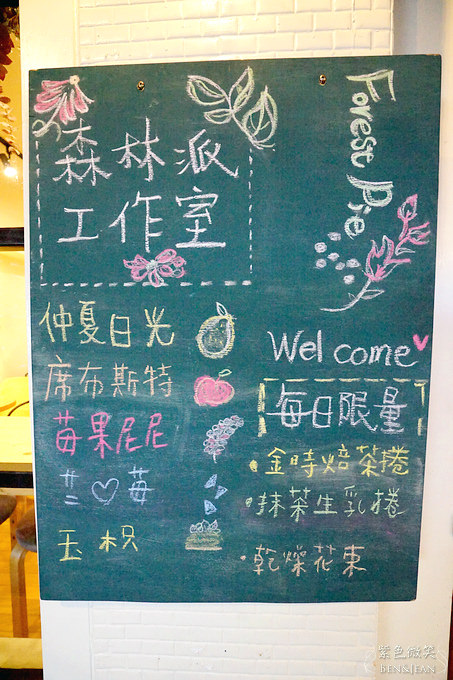 森林派
工作室
Forest Pie
仲夏日光
席布斯特
莓果尼尼
芒♡莓
玉枳
Welcome
每日限量
·金時焙茶捲
·抹茶生乳捲
·乾燥花束
紫色微笑
BEN&JEAN